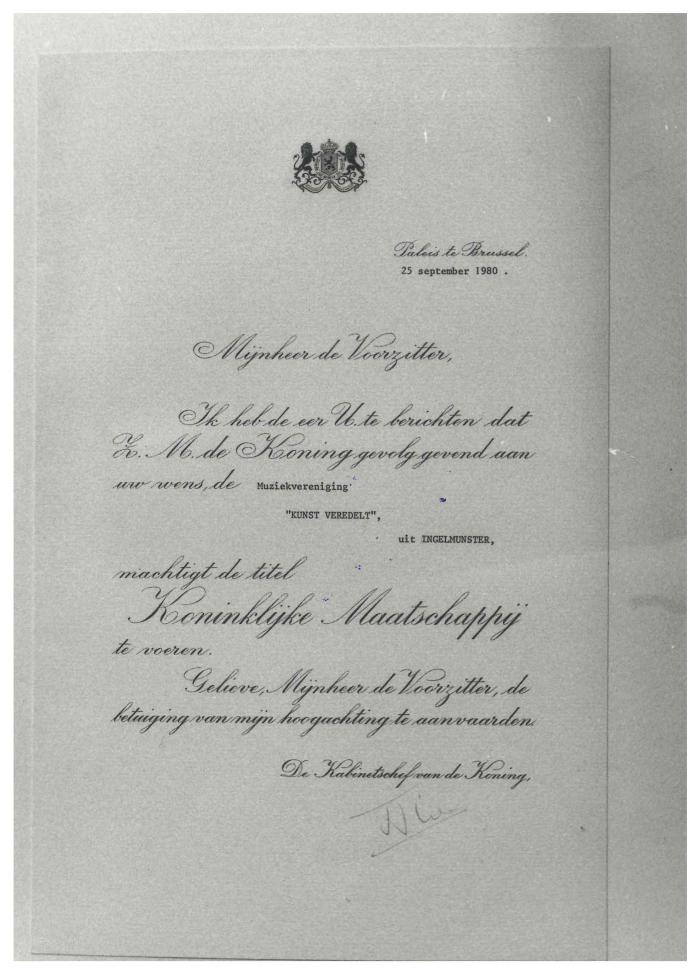 Paleis te Brussel.
25 september 1980 .
Mijnheer de Voorzitter,
Ik heb de eer U te berichten dat
Z. M. de Koning gevolg gevend aan
uw wens, de Muziekvereniging
"KUNST VEREDELT",
uit INGELMUNSTER,
machtigt de titel
Koninklijke Maatschappij
te voeren.
Gelieve, Mijnheer de Voorzitter, de
betuiging van mijn hoogachting te aanvaarden.
De Kabinetschef van de Koning,